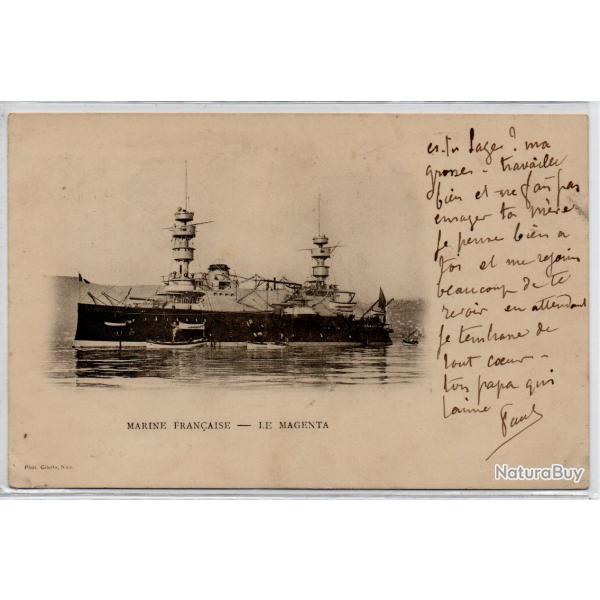 es-tu sage? ma
grosse - travaille
bien et ne fais pas
enrager ta mère
Je pense bien a
toi et me rejouis
beaucoup de te
revoir en attendant
je t'embrasse de
tout cœur -
ton papa qui
t'aime Paul
MARINE FRANÇAISE — LE MAGENTA
Phot. Giletta, Nice.
NaturaBuy